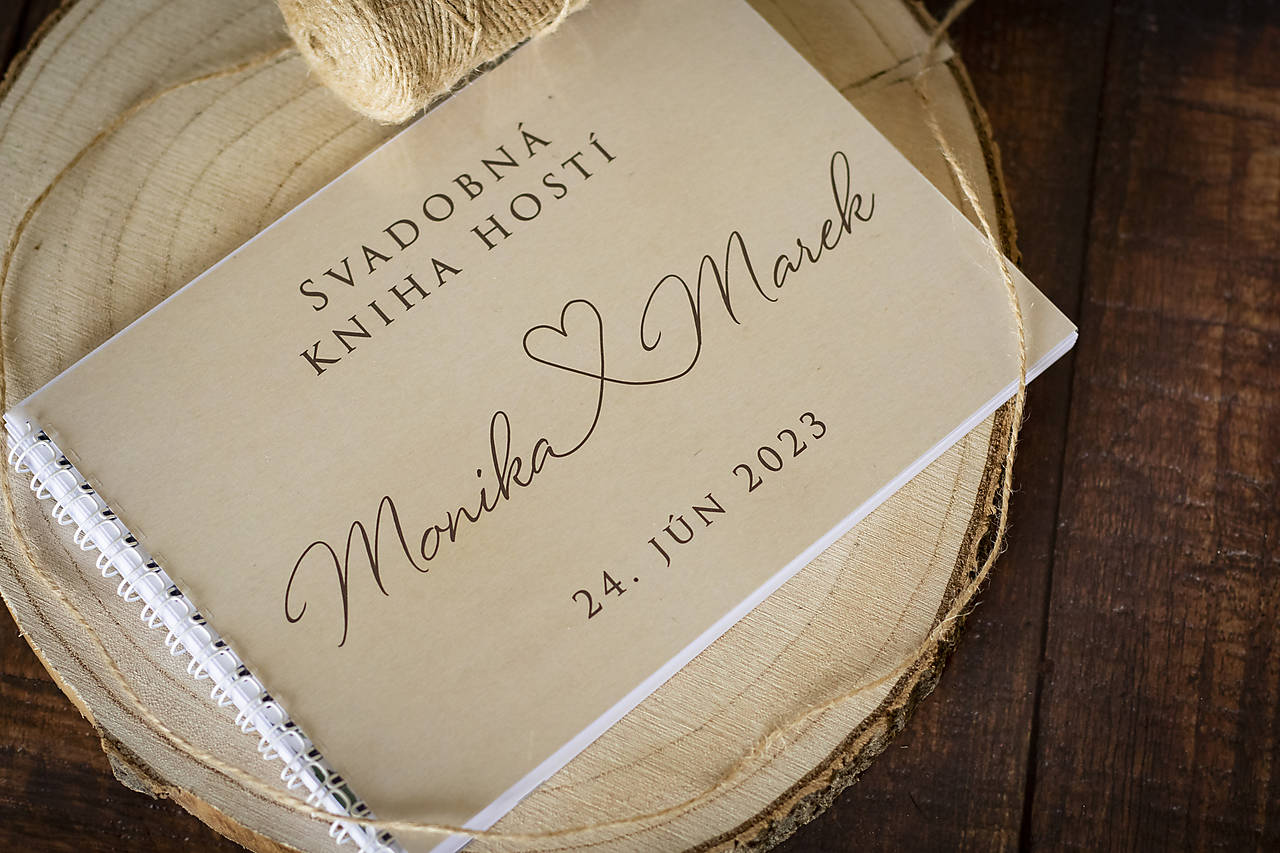 SVADOBNÁ
KNIHA HOSTÍ
Monika Marek
24. JÚN 2023